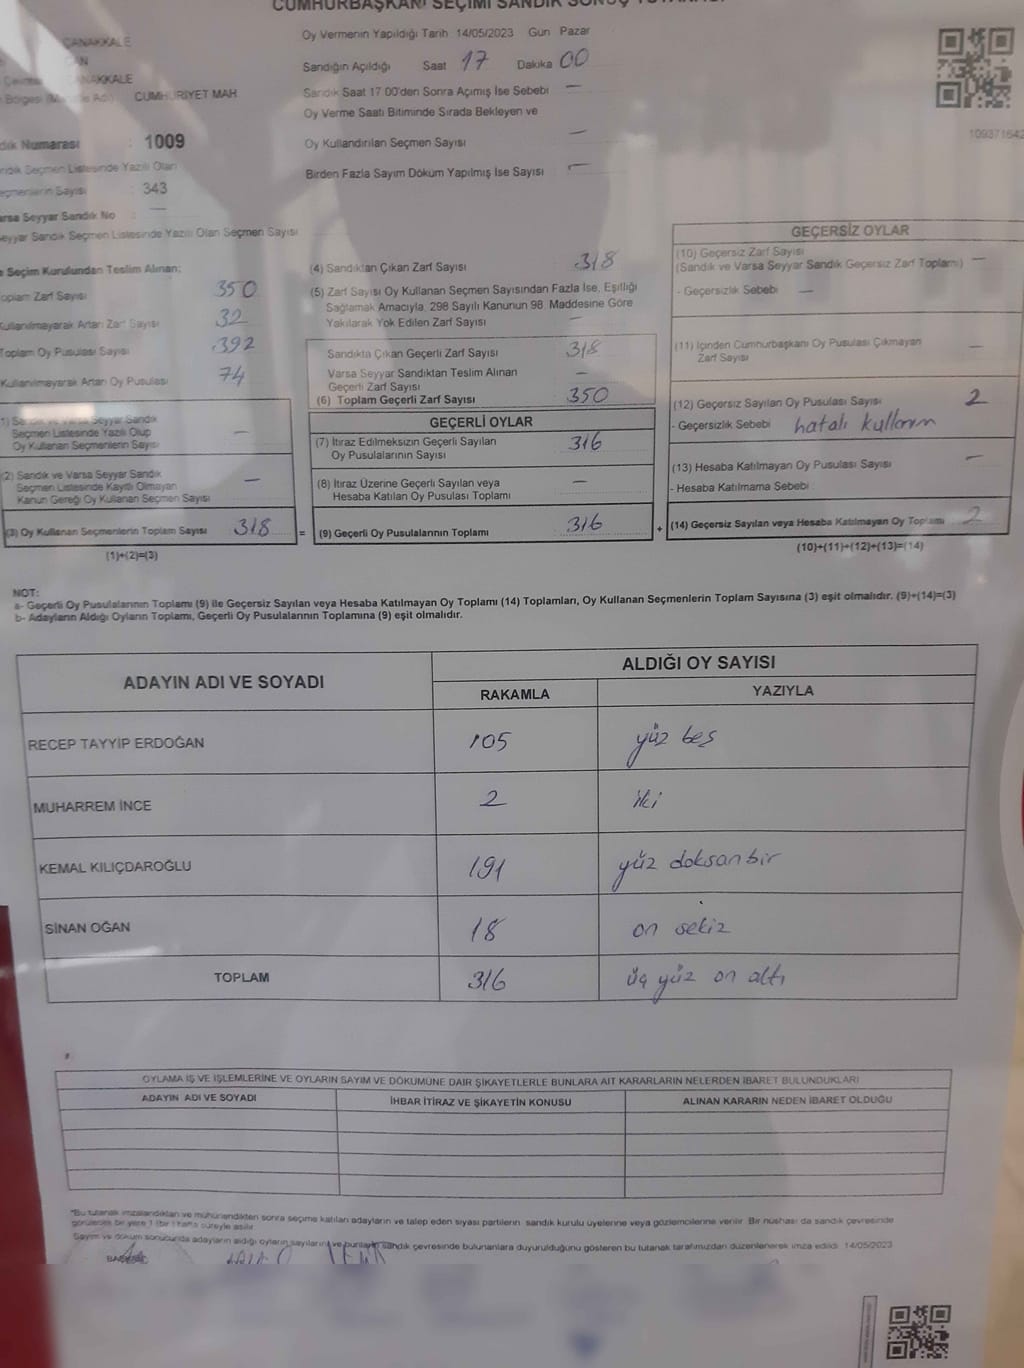 CUMHURBAŞKANI SEÇİMİ SANDIK SONUÇ TUTANAĞI
ÇANAKKALE
ÇANAKKALE
CUMHURİYET MAH
Numarası : 1009
Seçmen Listesinde Yazılı Olan
Seçmenlerin Sayısı : 343
Varsa Seyyar Sandık No : —
Seyyar Sandık Seçmen Listesinde Yazılı Olan Seçmen Sayısı
Seçim Kurulundan Teslim Alınan:
Toplam Zarf Sayısı 350
Kullanılmayarak Artan Zarf Sayısı 32
Toplam Oy Pusulası Sayısı 392
Kullanılmayarak Artan Oy Pusulası 74
Seyyar Sandık
Seçmen Listesinde Yazılı Olup
Oy Kullanan Seçmenlerin Sayısı —
(2) Sandık ve Varsa Seyyar Sandık
Seçmen Listesinde Kayıtlı Olmayan
Kanun Gereği Oy Kullanan Seçmen Sayısı —
(3) Oy Kullanan Seçmenlerin Toplam Sayısı 318 =
(1)+(2)=(3)
Oy Vermenin Yapıldığı Tarih 14/05/2023 Gün Pazar
Sandığın Açıldığı Saat 17 Dakika 00
Sandık Saat 17.00'den Sonra Açımış İse Sebebi —
Oy Verme Saati Bitiminde Sırada Bekleyen ve
Oy Kullandırılan Seçmen Sayısı —
Birden Fazla Sayım Döküm Yapılmış İse Sayısı —
(4) Sandıktan Çıkan Zarf Sayısı 318
(5) Zarf Sayısı Oy Kullanan Seçmen Sayısından Fazla İse, Eşitliği
Sağlamak Amacıyla, 298 Sayılı Kanunun 98. Maddesine Göre
Yakılarak Yok Edilen Zarf Sayısı —
Sandıkta Çıkan Geçerli Zarf Sayısı 318
Varsa Seyyar Sandıktan Teslim Alınan
Geçerli Zarf Sayısı —
(6) Toplam Geçerli Zarf Sayısı 350
GEÇERLİ OYLAR
(7) İtiraz Edilmeksizin Geçerli Sayılan
Oy Pusulalarının Sayısı 316
(8) İtiraz Üzerine Geçerli Sayılan veya
Hesaba Katılan Oy Pusulası Toplamı —
(9) Geçerli Oy Pusulalarının Toplamı 316 +
109371642
GEÇERSİZ OYLAR
(10) Geçersiz Zarf Sayısı
(Sandık ve Varsa Seyyar Sandık Geçersiz Zarf Toplamı) —
- Geçersizlik Sebebi —
(11) İçinden Cumhurbaşkanı Oy Pusulası Çıkmayan
Zarf Sayısı —
(12) Geçersiz Sayılan Oy Pusulası Sayısı 2
- Geçersizlik Sebebi hatalı kullanım
(13) Hesaba Katılmayan Oy Pusulası Sayısı —
- Hesaba Katılmama Sebebi :
(14) Geçersiz Sayılan veya Hesaba Katılmayan Oy Toplamı 2
(10)+(11)+(12)+(13)=(14)
NOT:
a- Geçerli Oy Pusulalarının Toplamı (9) ile Geçersiz Sayılan veya Hesaba Katılmayan Oy Toplamı (14) Toplamları, Oy Kullanan Seçmenlerin Toplam Sayısına (3) eşit olmalıdır. (9)+(14)=(3)
b- Adayların Aldığı Oyların Toplamı, Geçerli Oy Pusulalarının Toplamına (9) eşit olmalıdır.
ADAYIN ADI VE SOYADI
ALDIĞI OY SAYISI
RAKAMLA YAZIYLA
RECEP TAYYİP ERDOĞAN 105 yüz beş
MUHARREM İNCE 2 iki
KEMAL KILIÇDAROĞLU 191 yüz doksanbir
SİNAN OĞAN 18 on sekiz
TOPLAM 316 üç yüz on altı
OYLAMA İŞ VE İŞLEMLERİNE VE OYLARIN SAYIM VE DÖKÜMÜNE DAİR ŞİKAYETLERLE BUNLARA AİT KARARLARIN NELERDEN İBARET BULUNDUKLARI
ADAYIN ADI VE SOYADI İHBAR İTİRAZ VE ŞİKAYETİN KONUSU ALINAN KARARIN NEDEN İBARET OLDUĞU
*Bu tutanak imzalandıktan ve mühürlendikten sonra seçime katılan adayların ve talep eden siyasi partilerin sandık kurulu üyelerine veya gözlemcilerine verilir. Bir nüshası da sandık çevresinde
görülebilen bir yere 1 (bir) hafta süreyle asılır.
Sayım ve döküm sonucunda adayların aldığı oyların sayılarını ve bunların sandık çevresinde bulunanlara duyurulduğunu gösteren bu tutanak tarafımızdan düzenlenerek imza edildi. 14/05/2023
BAŞKAN